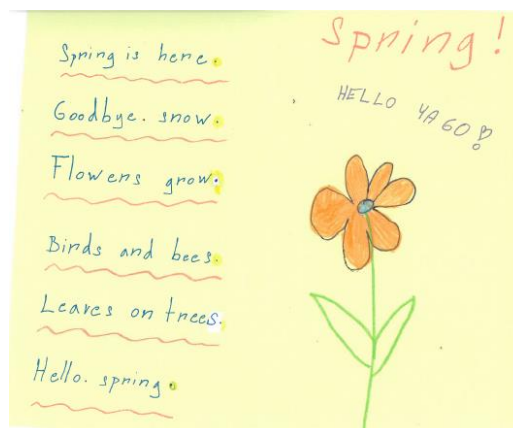 Spring is here.
Goodbye. snow.
Flowers grow.
Birds and bees.
Leaves on trees.
Hello. spring.
Spring!
HELLO YAGO!